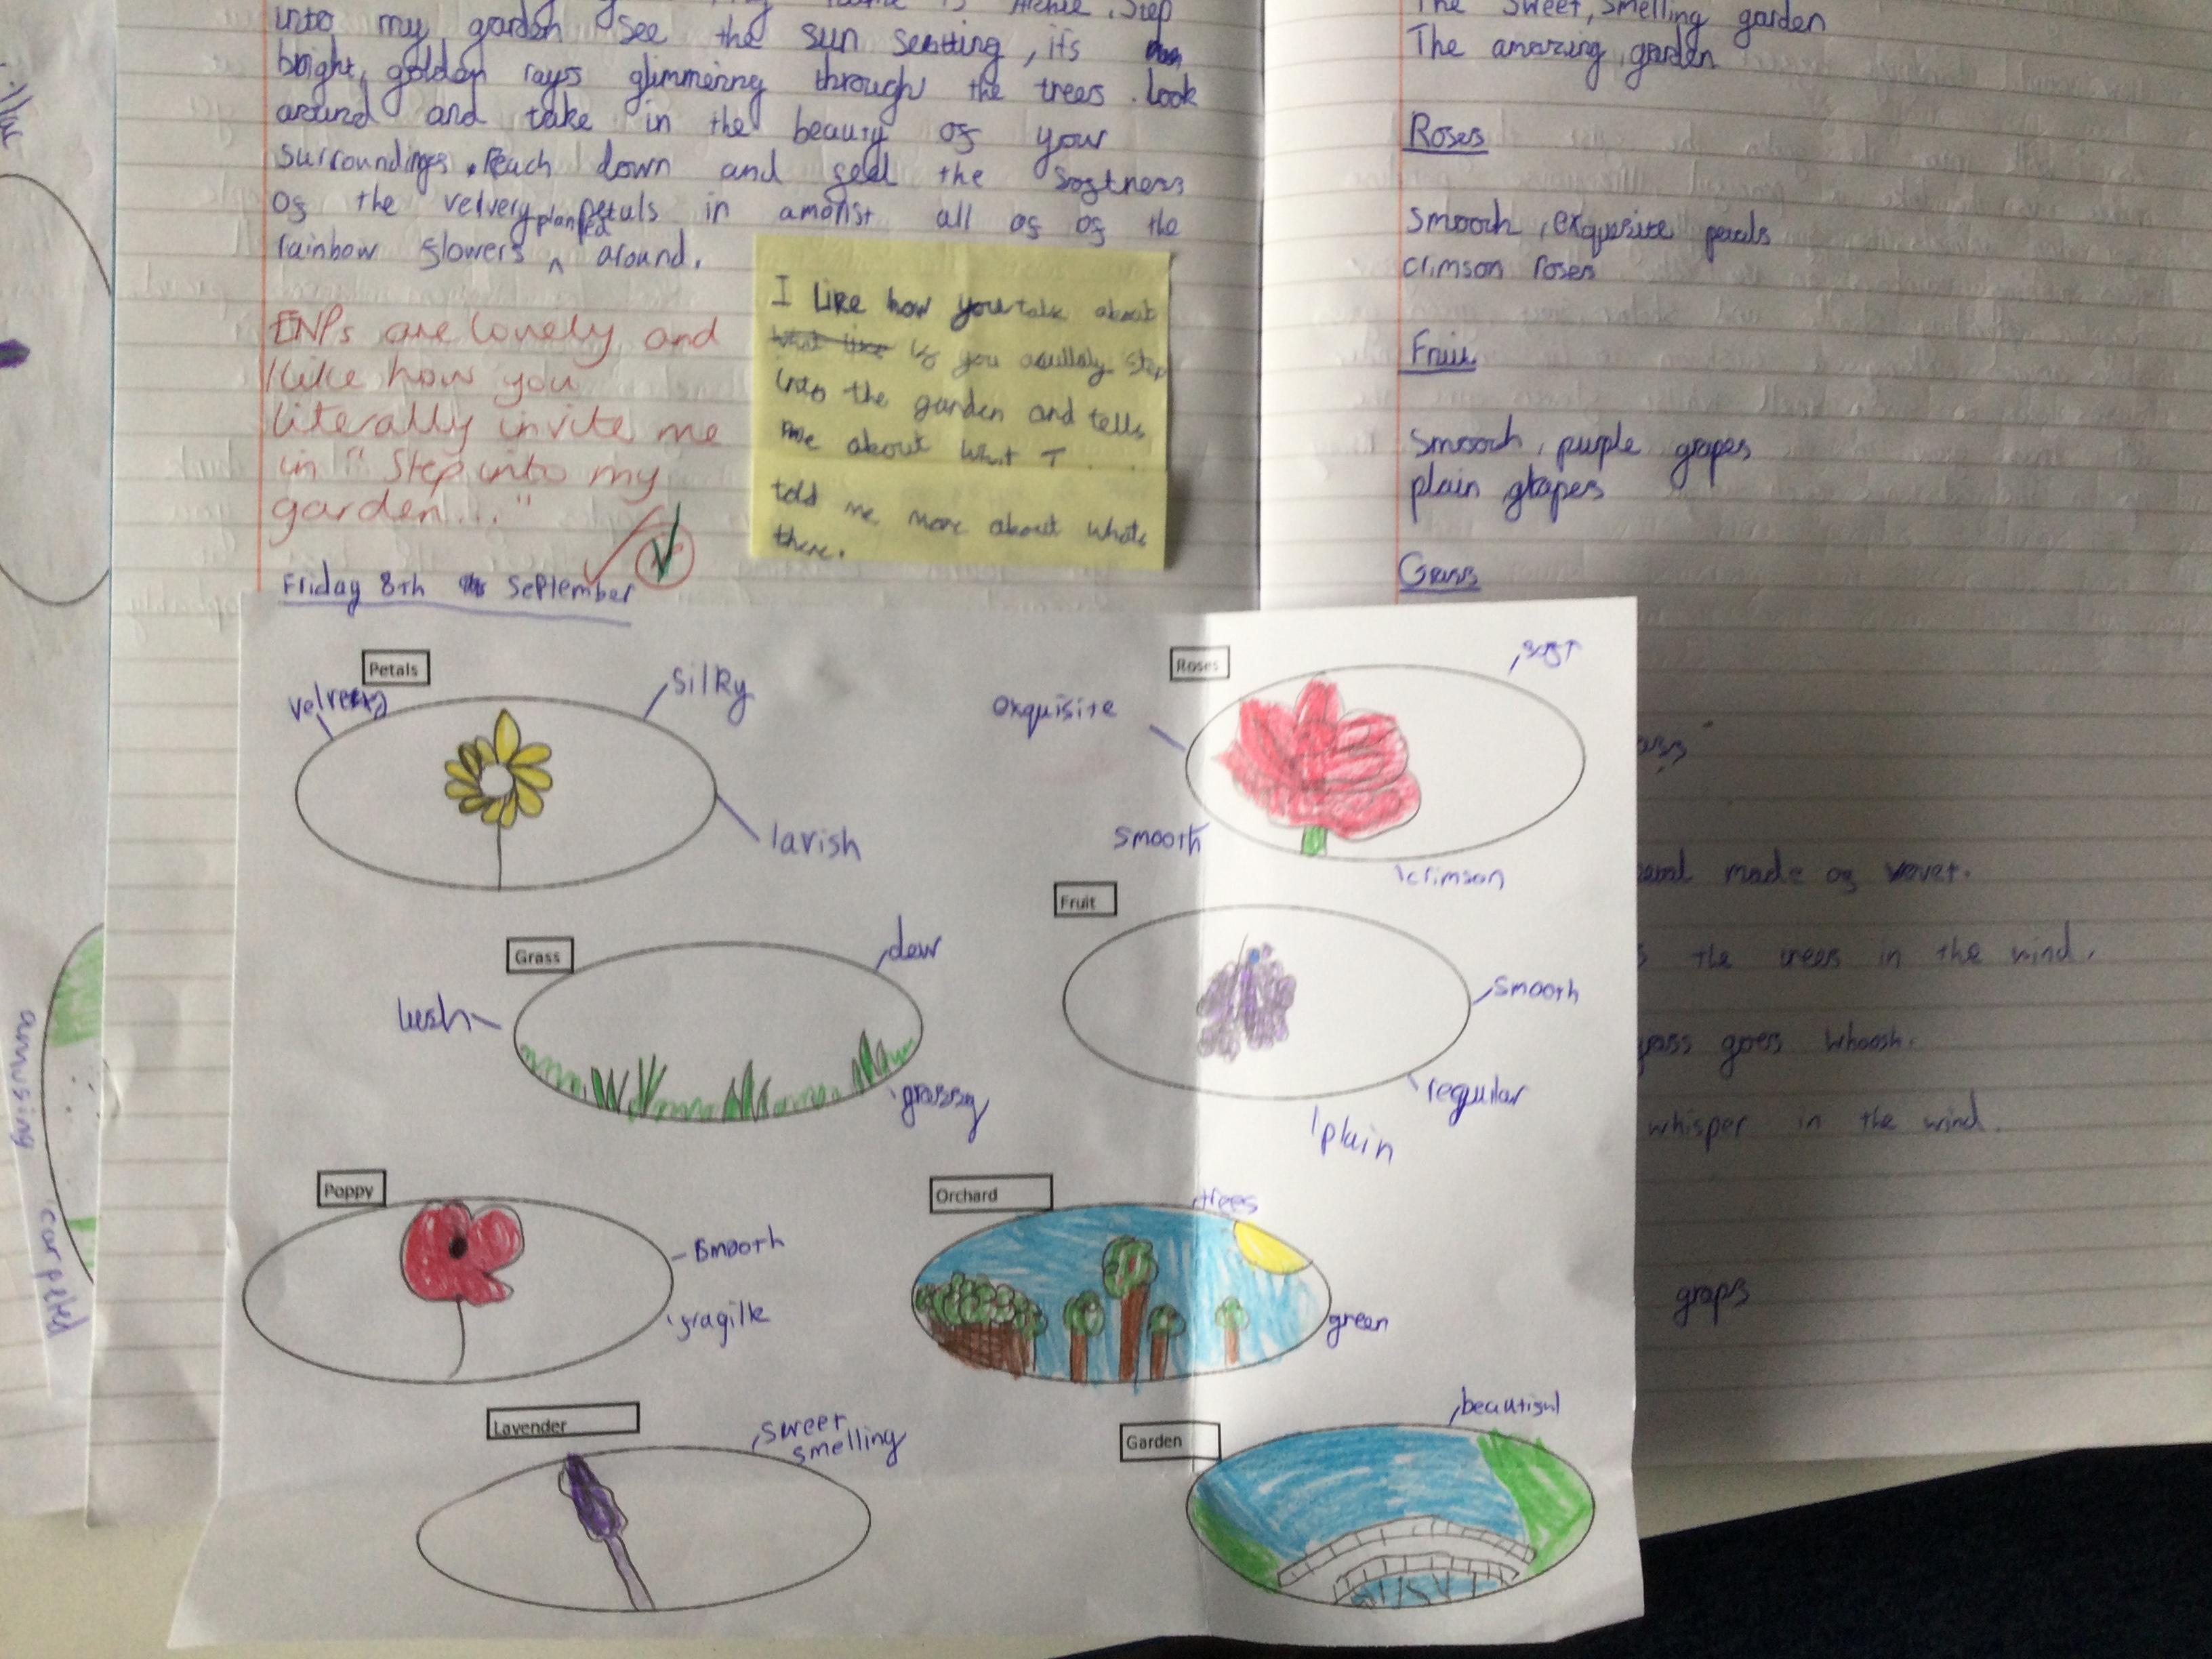 into my garden see the sun setting, it's
bright, golden rays glimmering through the trees. look
around and take in the beauty of your
surroundings. Reach down and feel the softness
of the velvery petals in amonst all of of the
planted
rainbow flowers ^ around.
ENPs are lovely and
I like how you
literally invite me
in "Step into my
garden..."
I like how you talk about
what like if you acullaly step
into the garden and tells
me about what I
told me more about whats
there.
Friday 8th September
The sweet, smelling garden
The amazing garden
Roses
smooth, exquisite petals
crimson roses
Fruit
smooth, purple grapes
plain grapes
Grass
made of vevet.
the trees in the wind.
goes whoosh.
whisper in the wind.
graps
Petals
velvety
silky
lavish
Roses
soft
exquisite
smooth
crimson
Grass
dew
lush
grassy
Fruit
smooth
regular
plain
Poppy
smooth
fragile
Orchard
trees
green
Lavender
sweet
smelling
Garden
beautiful
amusing
carpeted